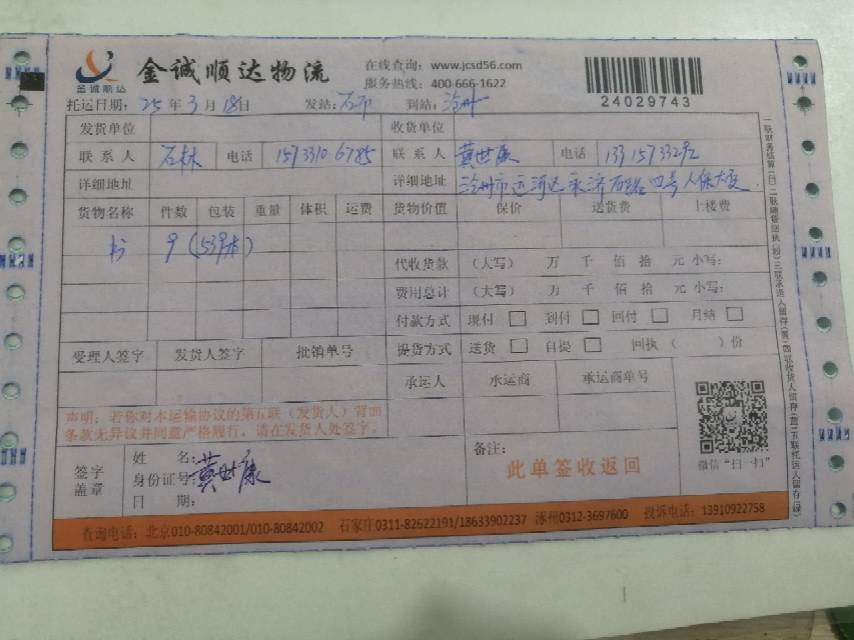 金诚顺达
金诚顺达物流
在线查询：www.jcsd56.com
服务热线：400-666-1622
24029743
托运日期：25年3月18日 发站：石市 到站：沧州
发货单位 收货单位
联系人 石林 电话 15733106785 联系人 黄世康 电话
详细地址 详细地址 沧州市运河区永济西路四号人保大厦
货物名称 件数 包装 重量 体积 运费 货物价值 保价 送货费 上楼费
书 9（539本）
代收货款 （大写） 万 千 佰 拾 元 小写：
费用总计 （大写） 万 千 佰 拾 元 小写：
付款方式 现付 到付 回付 月结
受理人签字 发货人签字 批销单号 提货方式 送货 自提 回执（ ）份
承运人 承运商 承运商单号
声明：若你对本运输协议的第五联（发货人）背面
条款无异议并同意严格履行，请在发货人处签字。
签字盖章
姓名：
身份证号：黄世康
日期：
备注：
此单签收返回
微信“扫一扫”
查询电话：北京010-80842001/010-80842002 石家庄0311-82622191/18633902237 涿州0312-3697600 投诉电话：13910922758